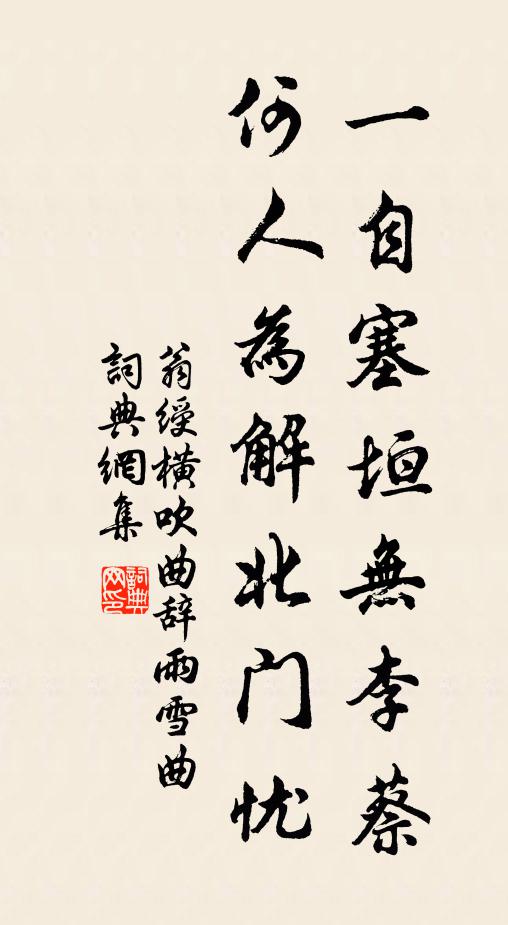 一自塞垣無李蔡
何人為解北门忧
翁綬横吹曲辞雨雪曲
詞典網集
詞典网印